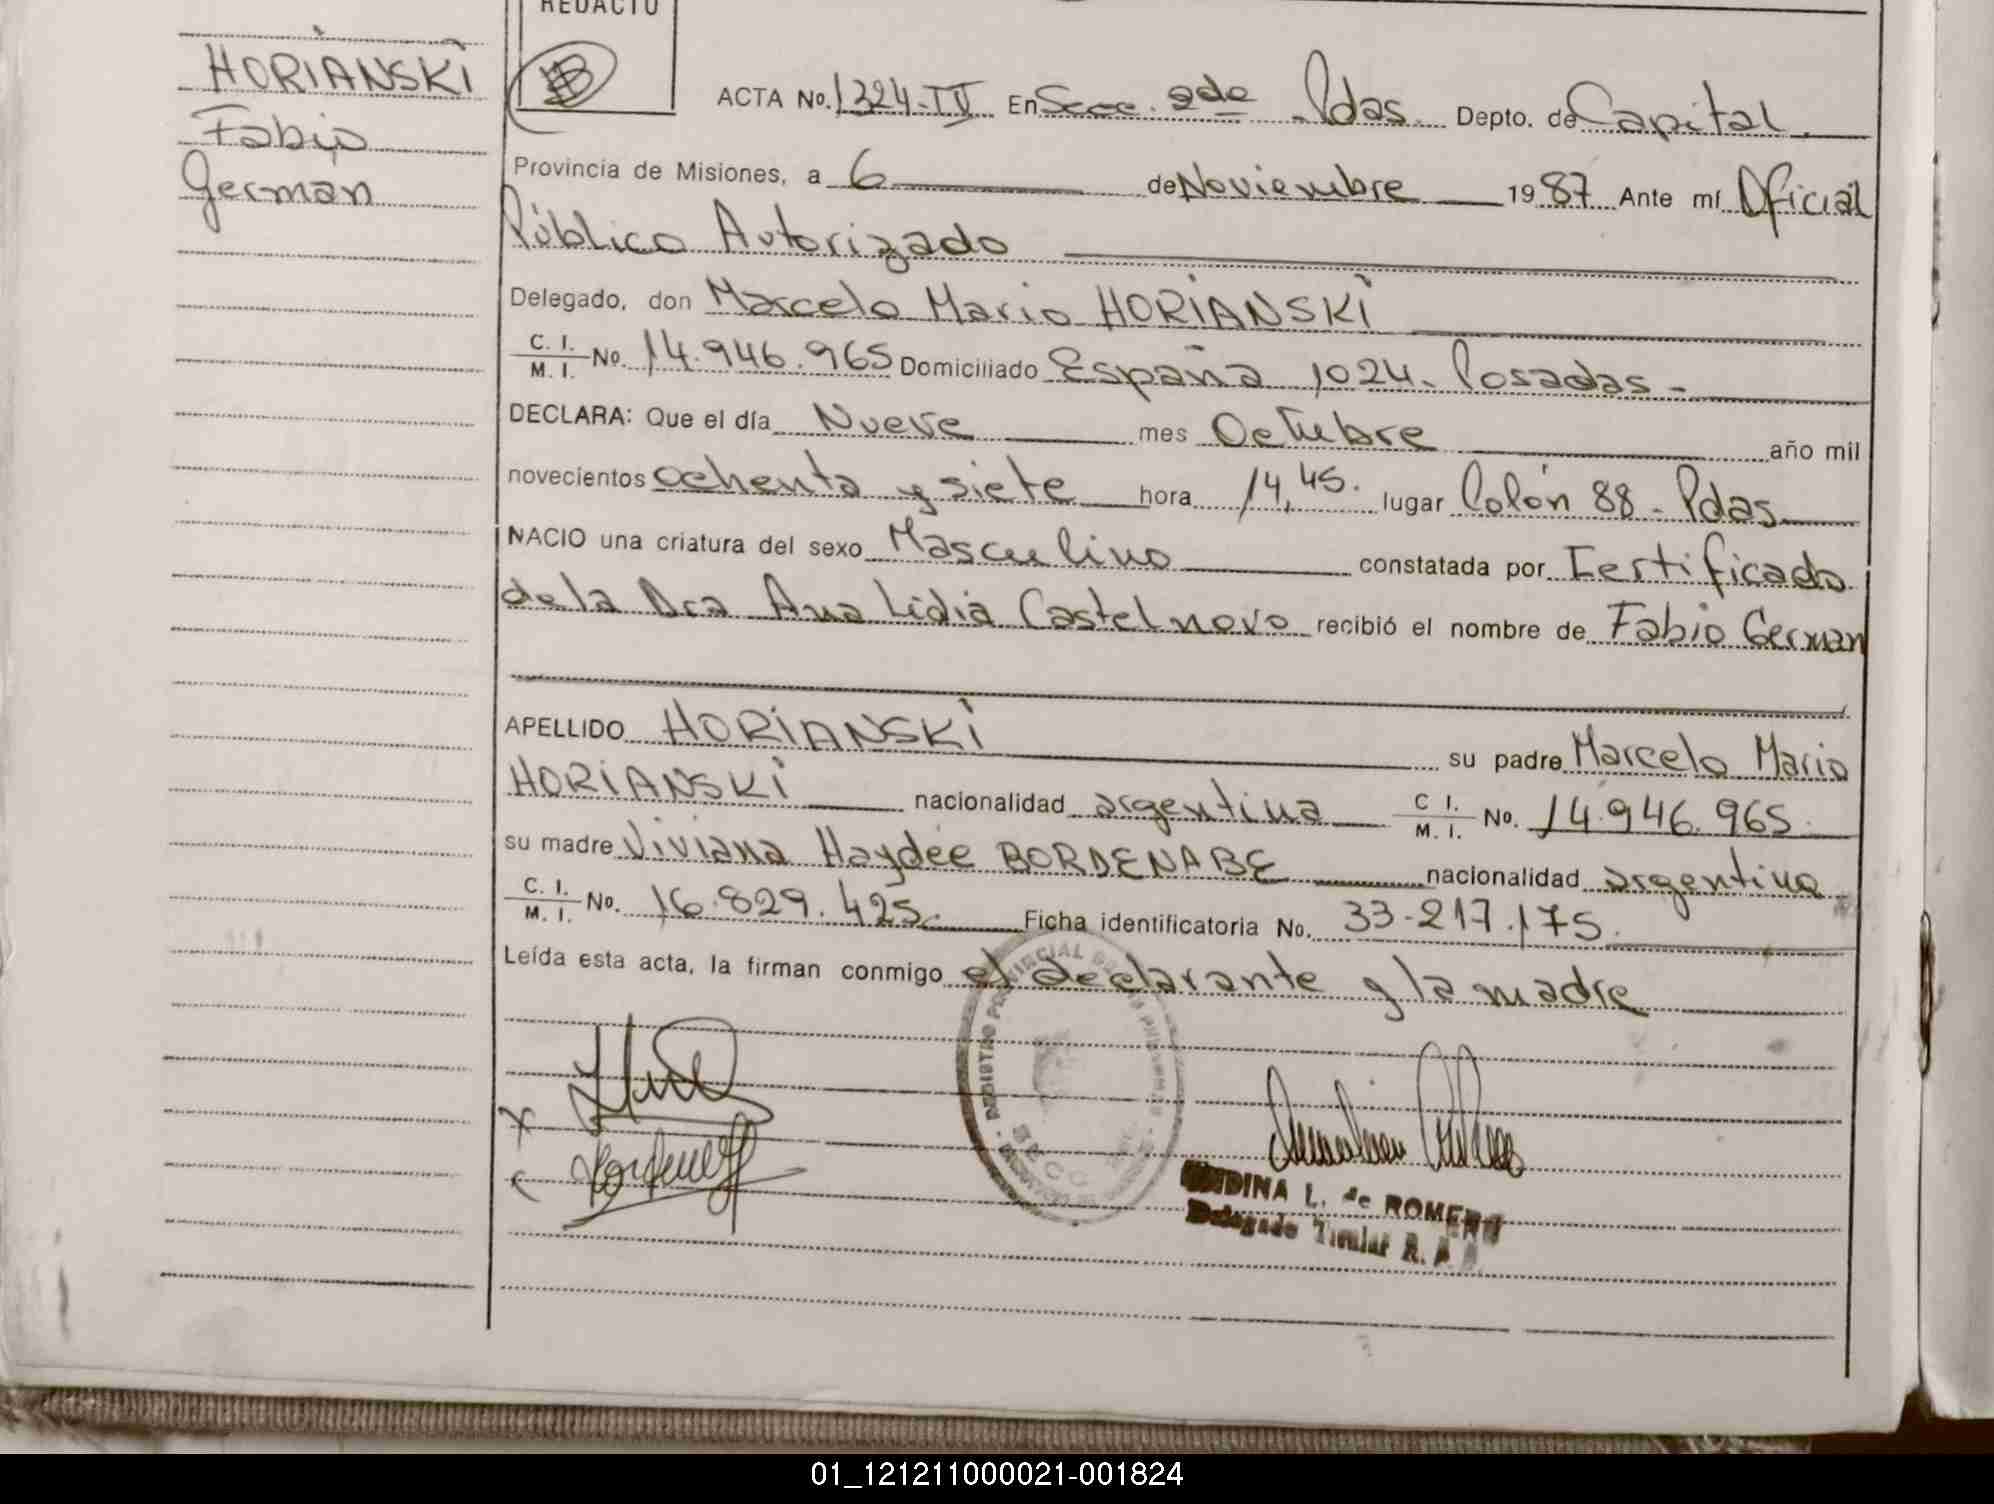 REDACTO
HORIANSKI
Fabio
German
ACTA No. 1324-IV En Secc. 2da Pdas. Depto. de Capital.
Provincia de Misiones, a 6 de Noviembre 1987 Ante mí Oficial
Público Autorizado
Delegado, don Marcelo Mario HORIANSKI
C. I.
M. I. No. 14.946.965 Domiciliado España 1024. Posadas -
DECLARA: Que el día Nueve mes Octubre año mil
novecientos ochenta y siete hora 14,45. lugar Colón 88 - Pdas
NACIO una criatura del sexo Masculino constatada por Certificado
de la Dra Ana Lidia Castelnovo recibió el nombre de Fabio German
APELLIDO HORIANSKI su padre Marcelo Mario
HORIANSKI nacionalidad argentina C I.
M. I. No. 14.946.965.
su madre Viviana Haydée BORDENABE nacionalidad argentina
C. I.
M. I. No. 16.829.425. Ficha identificatoria No. 33-217.175.
Leída esta acta, la firman conmigo el declarante y la madre
REGISTRO PROVINCIAL DE LAS PERSONAS
SECC
DINA L. de ROMERO
Delegado Titular R. P.
01_121211000021-001824